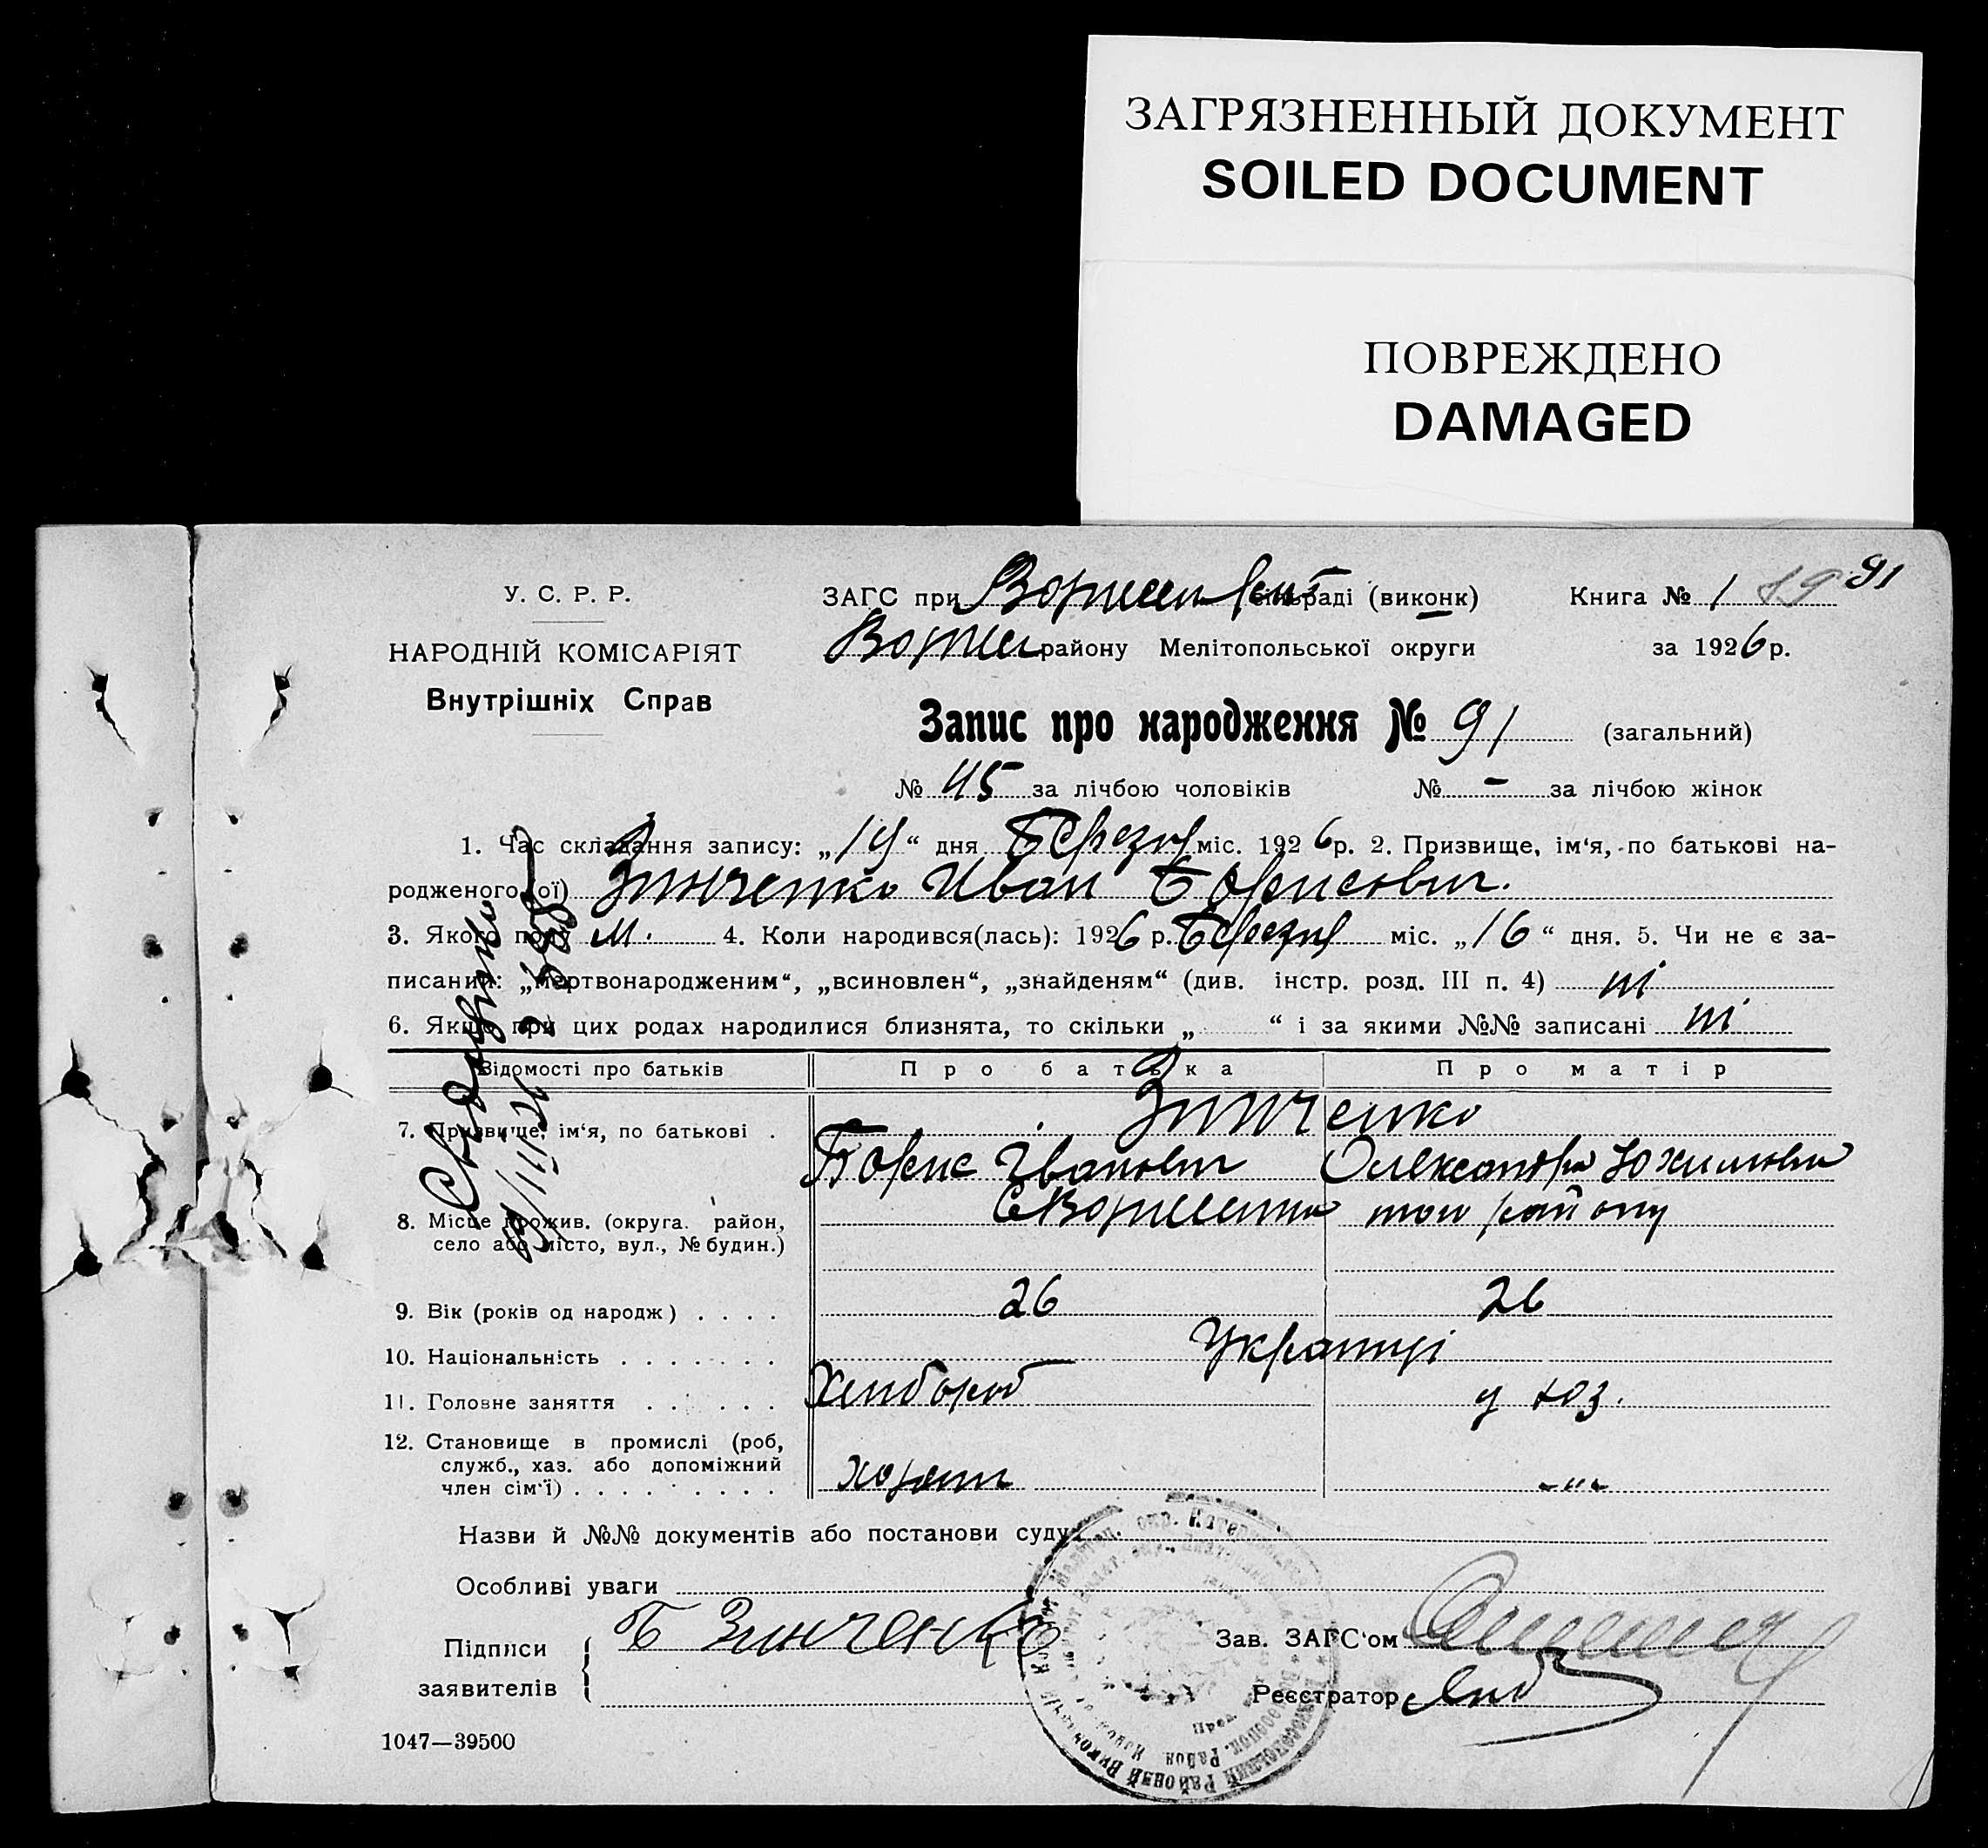 ЗАГРЯЗНЕННЫЙ ДОКУМЕНТ
SOILED DOCUMENT
ПОВРЕЖДЕНО
DAMAGED
91
У. С. Р. Р.
НАРОДНІЙ КОМІСАРІЯТ
Внутрішніх Справ
ЗАГС при сільраді (виконк) Книга № 1 19
району Мелітопольської округи за 1926 р.
Запис про народження № 91 (загальний)
№ 45 за лічбою чоловіків № - за лічбою жінок
1. Час складання запису: „19“ дня Березня міс. 1926 р. 2. Призвище, ім‘я, по батькові на-
родженого(ої) Зинченко Иван Борисович.
3. Якого полу М. 4. Коли народився(лась): 1926 р. Березня міс. „16“ дня. 5. Чи не є за-
писаний: „мертвонародженим“, „всиновлен“, „знайденям“ (див. інстр. розд. III п. 4) ні
6. Якщо при цих родах народилися близнята, то скільки „ “ і за якими №№ записані ні
Відомості про батьків Про батька Про матір
Зинченко
7. Призвище, ім‘я, по батькові . Борис Іванович Олександра Юхимовна
8. Місце прожив. (округа. район, того району
село або місто, вул., № будин.)
9. Вік (років од народж) . . . . 26 26
10. Національність . . . . . . . Українці
11. Головне заняття . . . . . . Хлібороб у хоз.
12. Становище в промислі (роб,
служб., хаз. або допоміжний
член сім‘ї) . . . . . . . . . хозяин -"-
Назви й №№ документів або постанови суду
Особливі уваги
Підписи
заявителів
Б Зинченко
Зав. ЗАГС‘ом
Реєстратор
1047—39500